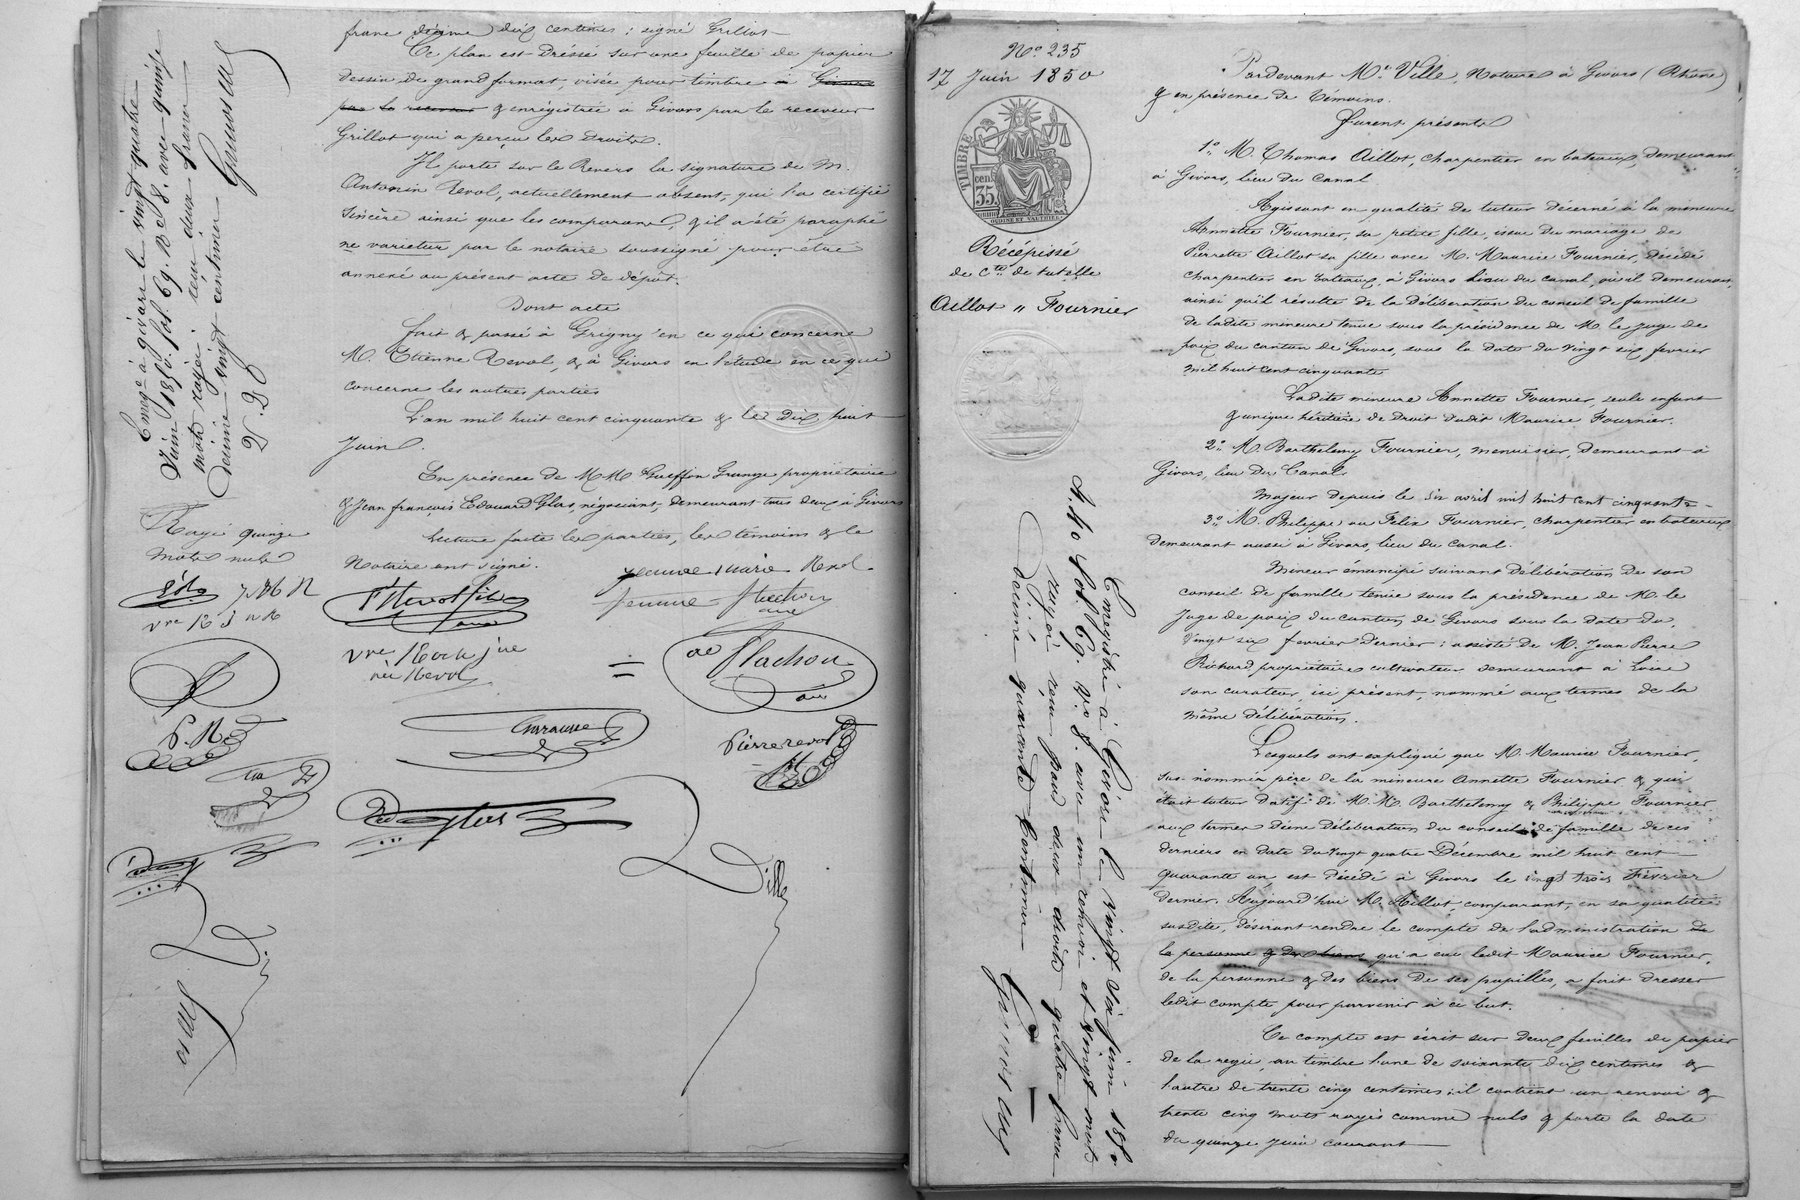 franc décime dix centimes : signé Grillot
Ce plan est Dressé sur une feuille de papier
dessin de grand format, visée pour timbre à Givors
par le receveur & enregistrée à Givors par le receveur
Grillot qui a perçu les droits.
Il porte sur le Revers la signature de M.
Antonin Revol, actuellement absent, qui l'a certifié
Sincère ainsi que les comparans, & il a été paraphé
ne varietur par le notaire soussigné pour être
annexé au présent acte de dépôt.
Dont acte
fait & passé à Grigny en ce qui concerne
M. Etienne Revol, & à Givors en l'étude en ce qui
concerne les autres parties
L'an mil huit cent cinquante & le dix huit
Juin.
En présence de MM Gueffon Grange propriétaire
& Jean françois Edouard Glas, négociant, demeurant tous deux à Givors
Lecture faite les parties, les témoins & le
Notaire ont signé.
Jeanne Marie Revol
femme Flachon
Flachon
Pierre revol
Ville
Enreg. à givors le vingt quatre
Juin 1850. fol. 69. R. C. 8. avec quinze
mots rayés : reçu deux francs
décime vingt centimes
Rayé quinze
mots nuls
P. R
Nº 235
17 Juin 1850
TIMBRE
cen.
35.
Récépissé
de Cte de tutelle
Aillot " Fournier
Enregistré à Givors le vingt six juin 1850
fol. 69. Vº 8. avec un renvoi et vingt mots
rayés reçu pour deux droits quatre francs
décime quarante centimes
Pardevant Me Ville, Notaire à Givors (Rhône)
& en présence de témoins.
Furent présents
1º M. Thomas Aillot, charpentier en bateaux, demeurant
à Givors, lieu du Canal
Agissant en qualité de tuteur décerné à la mineure
Annette Fournier, sa petite fille, issue du mariage de
Pierrette Aillot sa fille avec M. Maurice Fournier, décédé
charpentier en bateaux, à Givors lieu du canal, où il demeurait,
ainsi qu'il résulte de la Délibération du conseil de famille
de ladite mineure tenue sous la présidence de M. le Juge de
paix du canton de Givors, sous la date du vingt six fevrier
mil huit cent cinquante
Ladite mineure Annette Fournier, seule enfant
& unique héritière de Droit dudit Maurice Fournier.
2º M. Barthelemy Fournier, menuisier, Demeurant à
Givors, lieu du Canal.
Majeur depuis le six avril mil huit cent cinquante
3º M. Philippe ou Felix Fournier, charpentier en bateaux
Demeurant aussi à Givors, lieu du canal.
Mineur émancipé suivant délibération de son
conseil de famille tenue sous la présidence de M. le
Juge de paix du canton de Givors sous la date du
vingt six fevrier dernier : assisté de M. Jean Pierre
Richard propriétaire cultivateur demeurant à Loire
son curateur ici présent, nommé aux termes de la
même délibération.
Lesquels ont expliqué que M. Maurice Fournier,
sus-nommé, père de la mineure Annette Fournier & qui
était tuteur datif de M. M. Barthelemy & Philippe Fournier
aux termes d'une Délibération du conseil de famille de ces
derniers en date du vingt quatre Décembre mil huit cent
quarante un est décédé à Givors le vingt trois Février
dernier. Aujourd'hui M. Aillot, comparant, en sa qualité
susdite, désirant rendre le compte de l'administration de
la personne & des biens qu'a eue ledit Maurice Fournier,
de la personne & des biens de ses pupilles, a fait dresser
ledit compte pour parvenir à ce but.
Ce compte est écrit sur deux feuilles de papier
de la régie, au timbre l'une de soixante dix centimes &
l'autre de trente cinq centimes : il contient un renvoi &
trente cinq mots rayés comme nuls & porte la date
du quinze juin courant